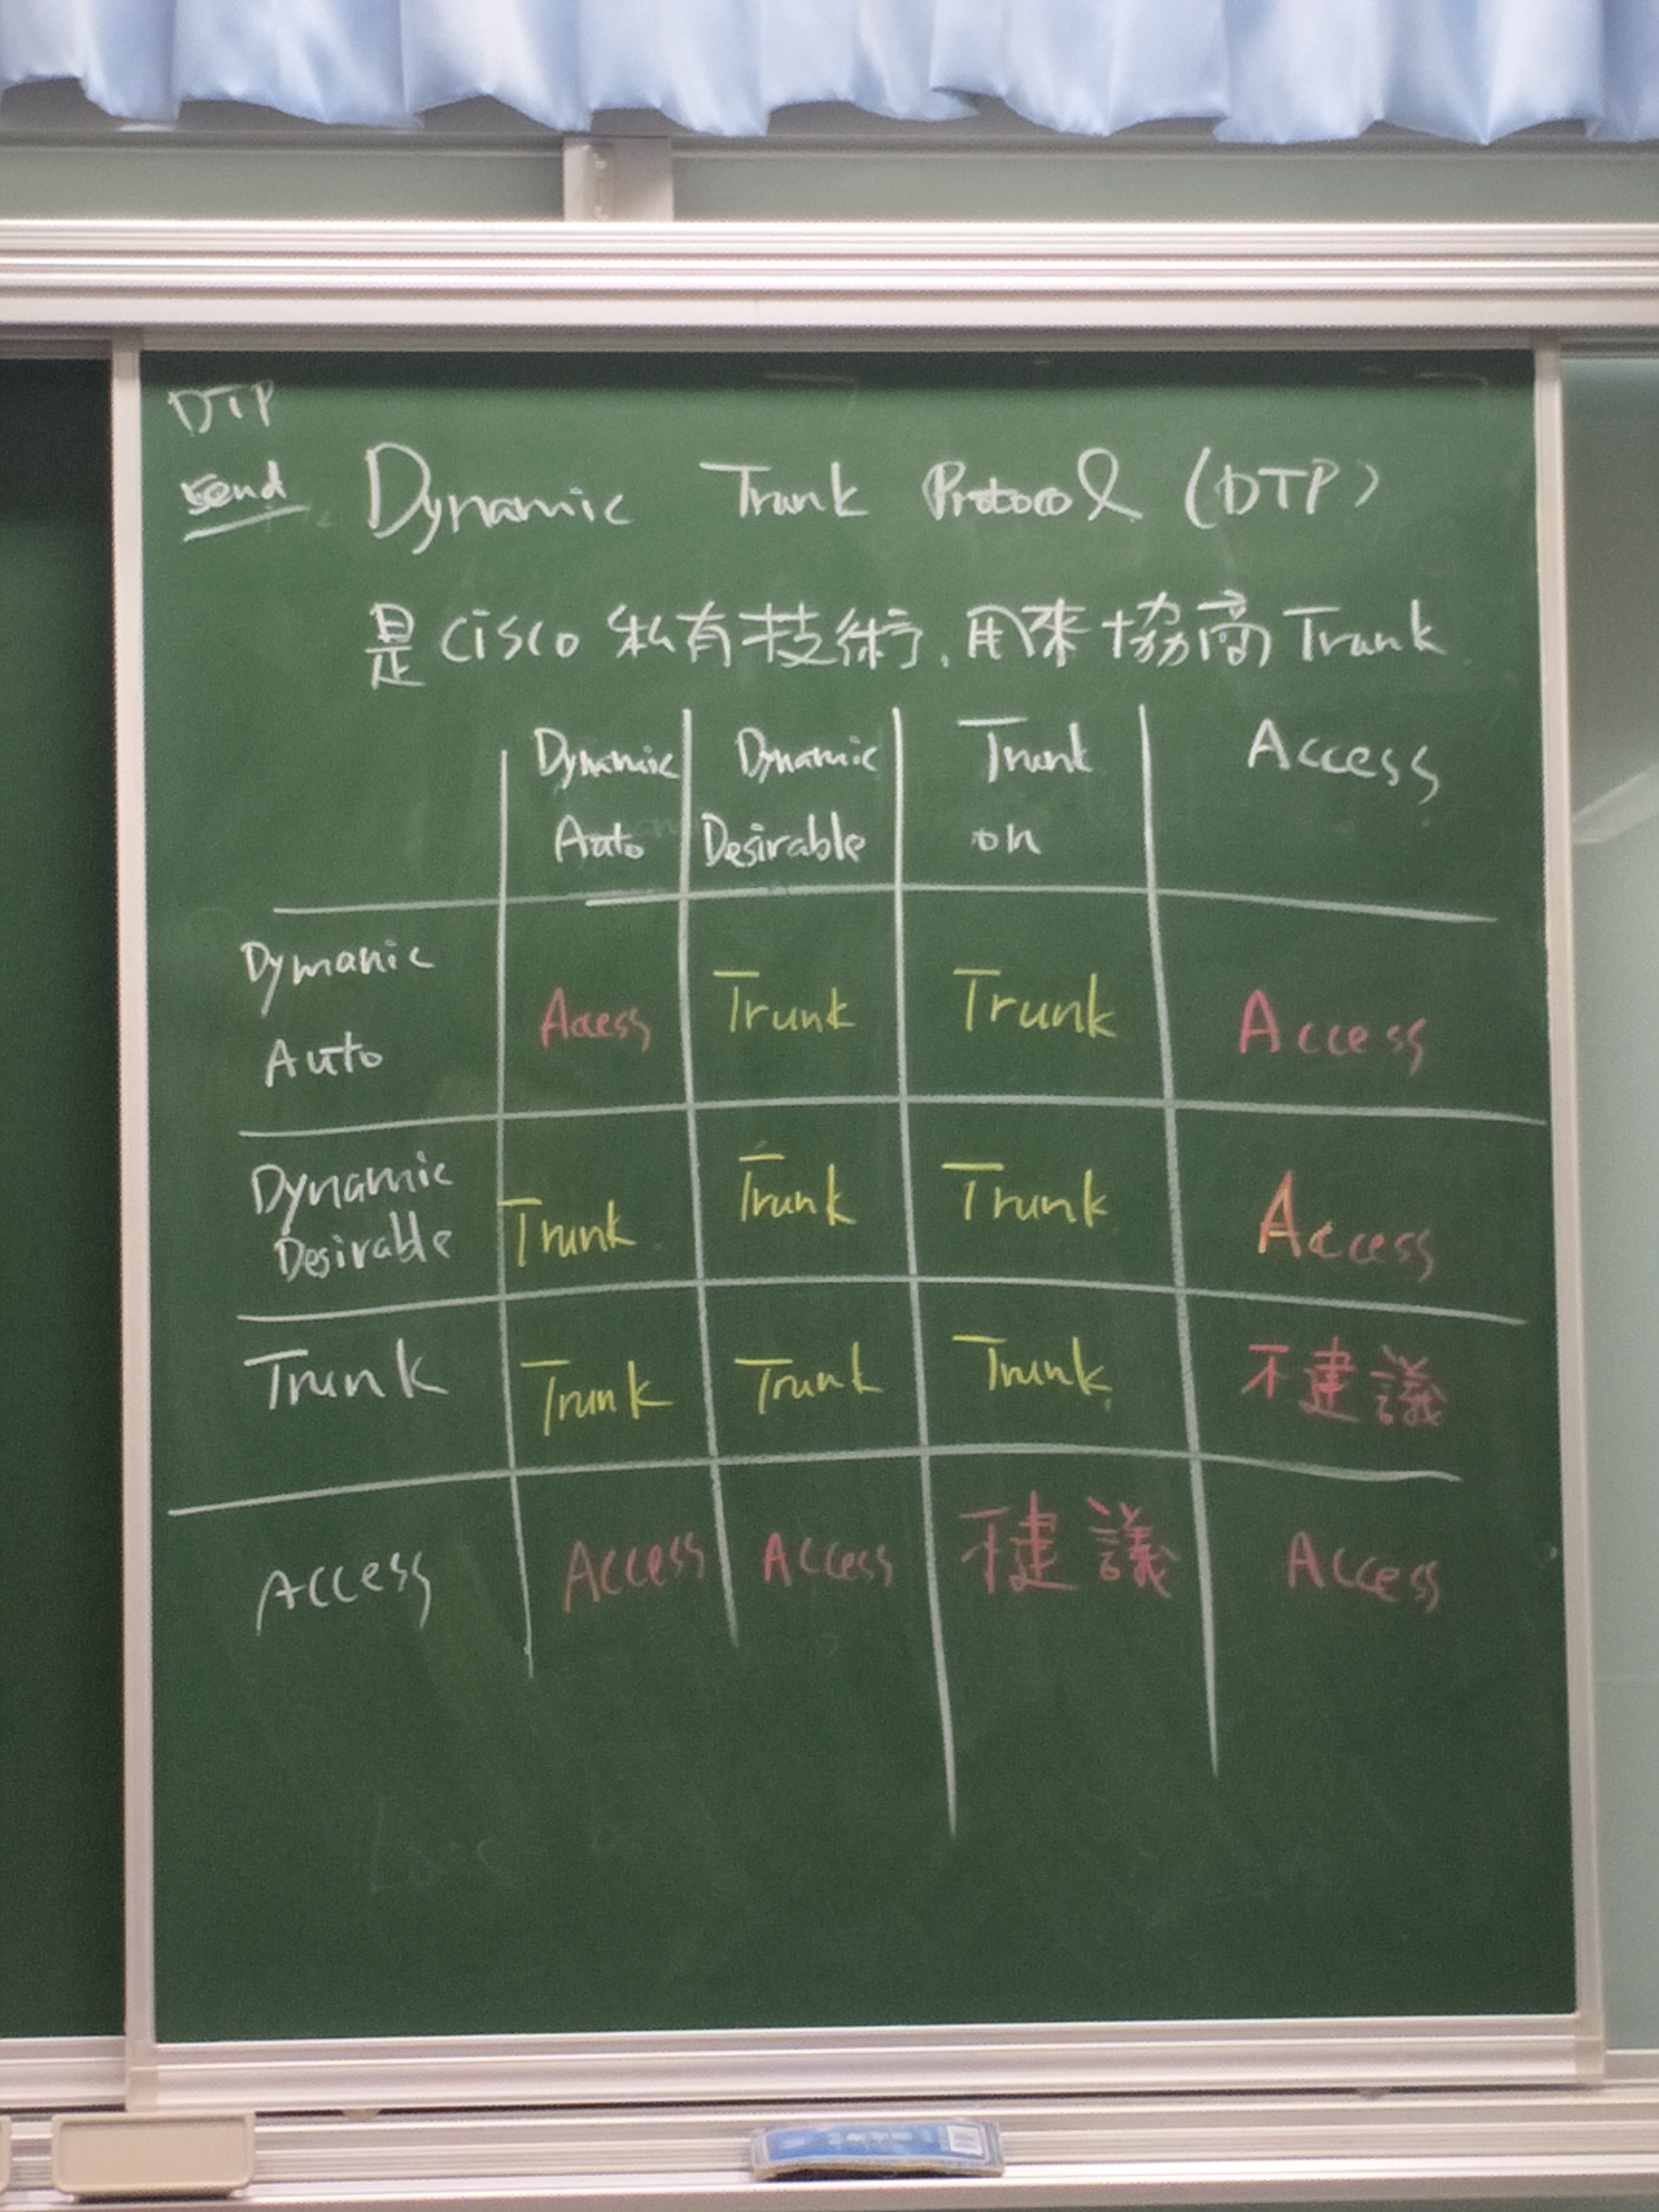 DTP
send
Dynamic Trunk Protocol (DTP)
是 Cisco 私有技術, 用來協商 Trunk
Dynamic Auto Dynamic Desirable Trunk on Access
Dymanic Auto Access Trunk Trunk Access
Dynamic Desirable Trunk Trunk Trunk Access
Trunk Trunk Trunk Trunk 不建議
Access Access Access 不建議 Access